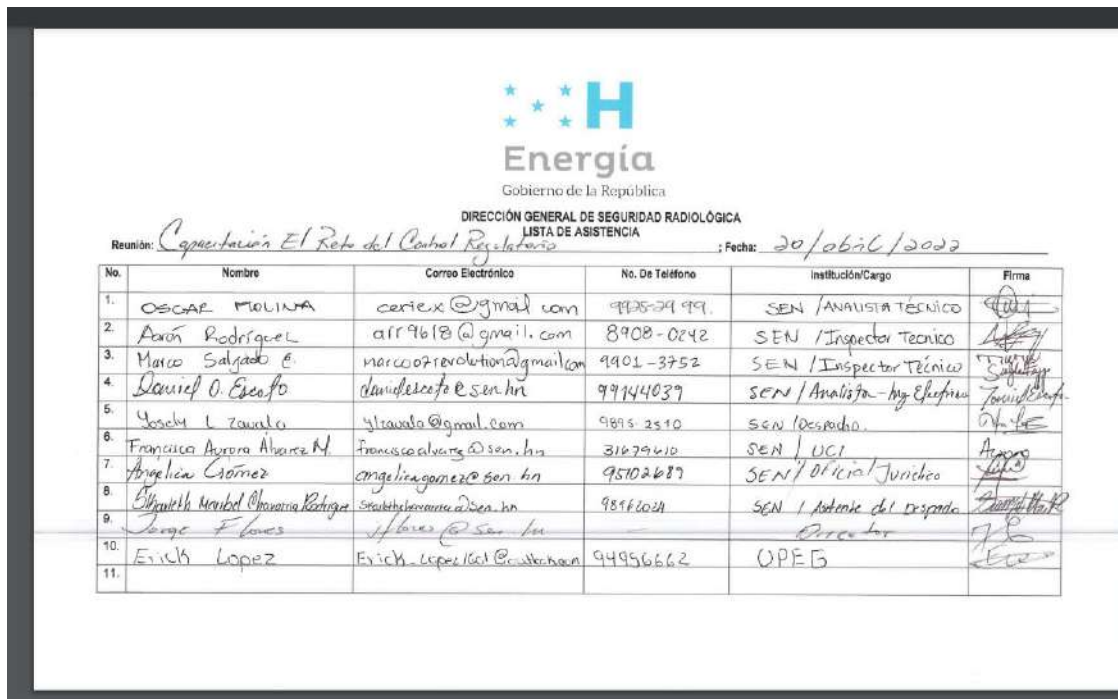 H
Energía
Gobierno de la República
DIRECCIÓN GENERAL DE SEGURIDAD RADIOLÓGICA
LISTA DE ASISTENCIA
Reunión: Capacitación El Reto del Control Regulatorio ; Fecha: 20/abril/2022
No. Nombre Correo Electrónico No. De Teléfono Institución/Cargo Firma
1. OSCAR MOLINA ceriex@gmail com 9925-2999. SEN /ANALISTA TÉCNICO
2. Aarón Rodríguez arr9618@gmail.com 8908-0242 SEN /Inspector Tecnico
3. Marco Salgado E. marco07revolution@gmail com 9901-3752 SEN /Inspector Técnico
4. Daniel O. Escoto danielescoto@sen.hn 99144039 SEN / Analista-Ing
5. L Zavala ylzavala@gmail.com 9895-2510 SEN /Despacho.
6. Francisca Aurora Álvarez M. franciscaalvarez@sen.hn 31679610 SEN / UCI Aurora
7. Angelica Gómez angelicagomez@sen.hn 95102689 SEN / Oficial Jurídico
8. Maribel Chavarria SEN / Asistente del Despacho
9. Jorge Flores jflores@sen.hn Director
10. Erick Lopez 94956662 UPEG
11.